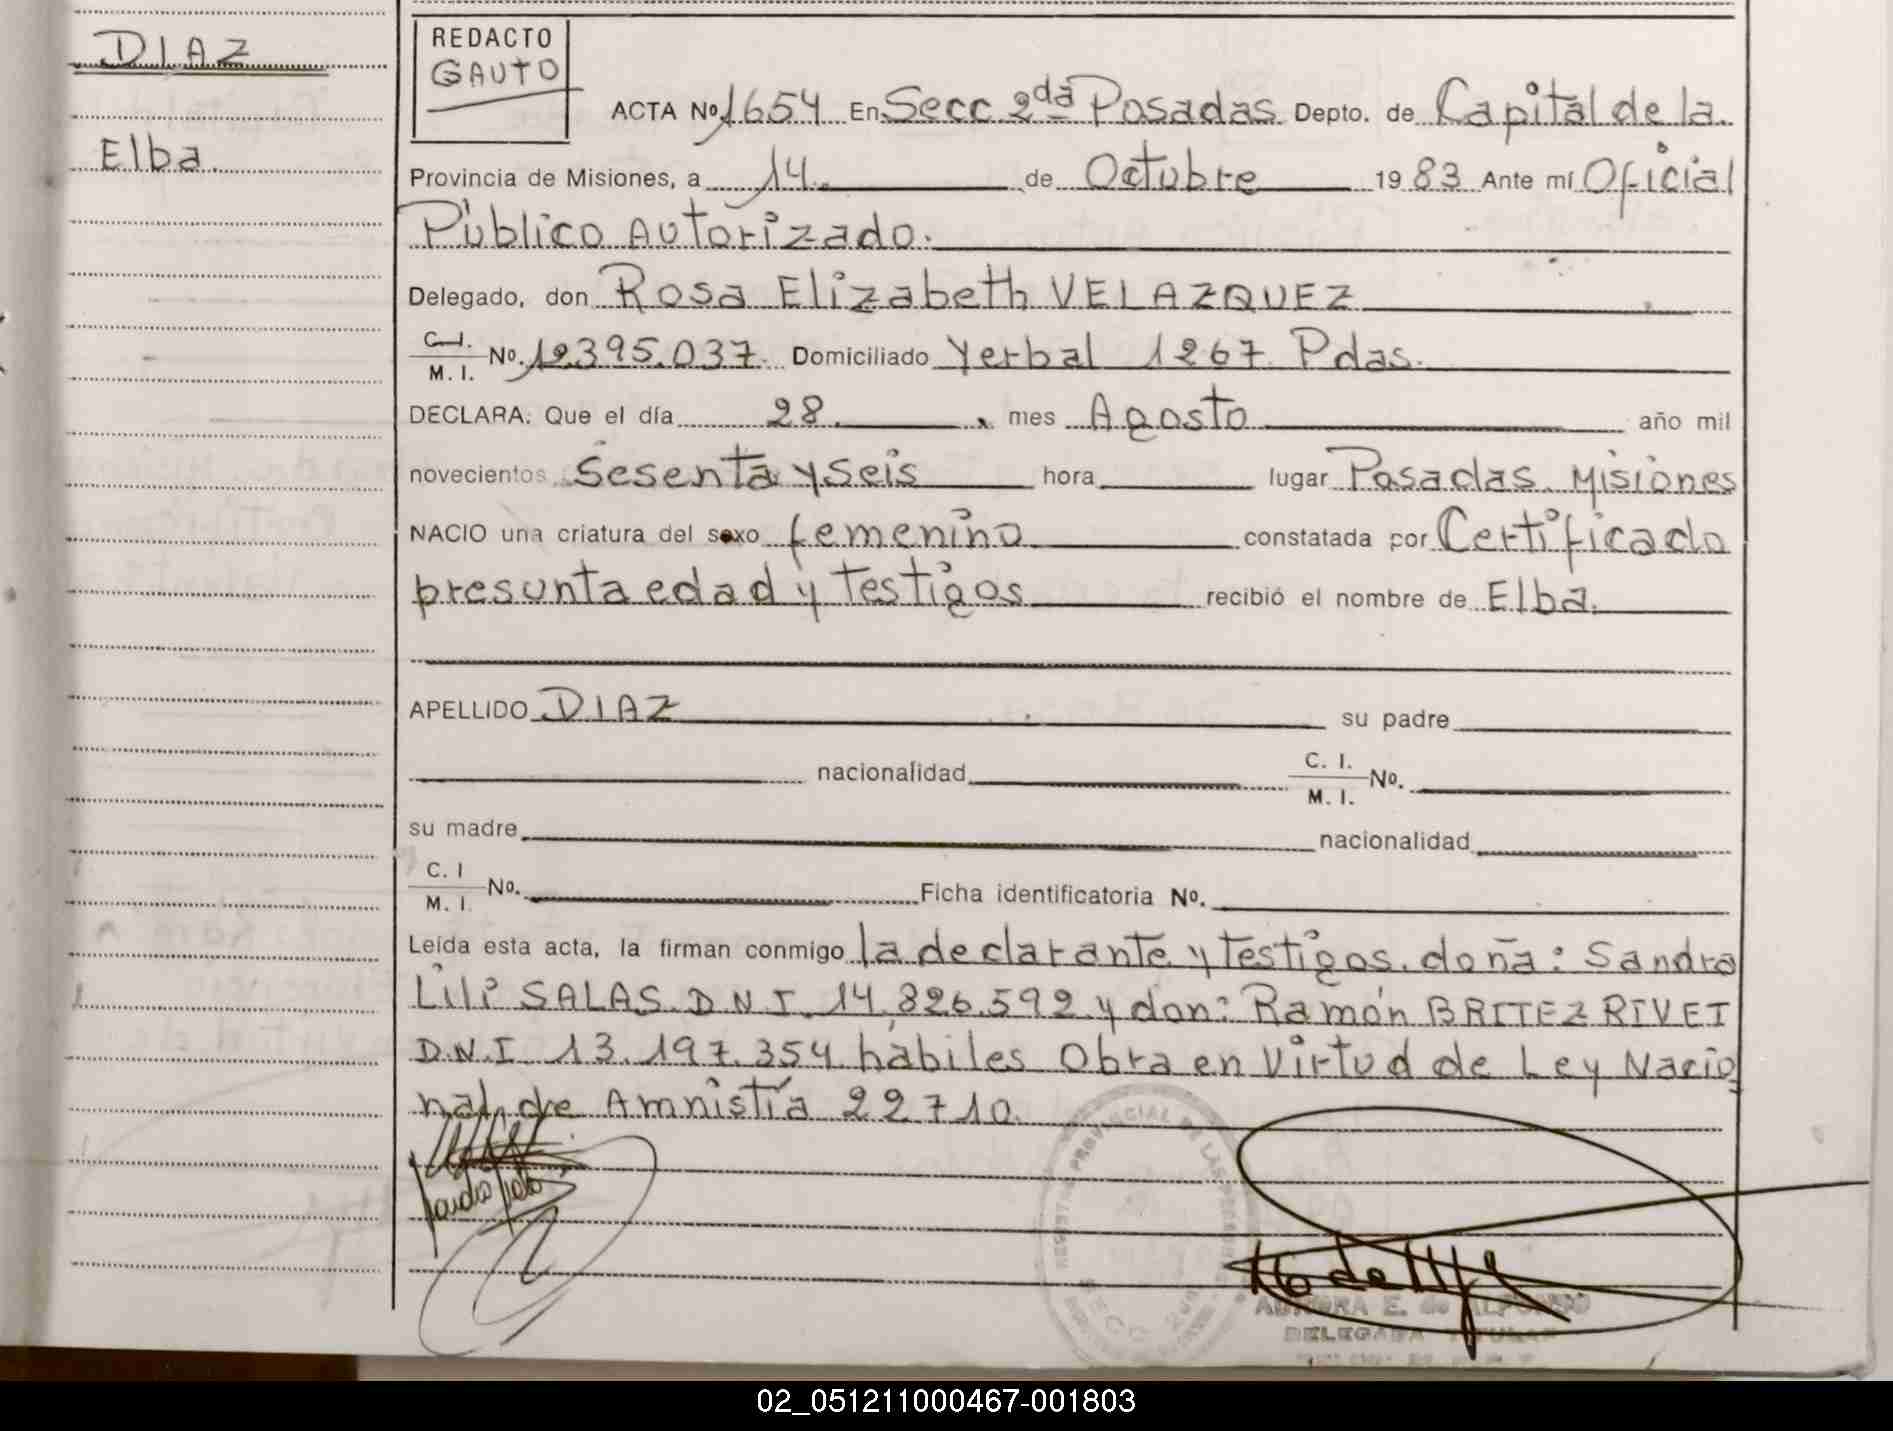 DIAZ
Elba
REDACTO
GAUTO
ACTA Nº 1654 En Secc 2da Posadas Depto. de Capital de la
Provincia de Misiones, a 14 de Octubre 1983 Ante mí Oficial
Público Autorizado.
Delegado, don Rosa Elizabeth VELAZQUEZ
C.I. M. I. Nº. 12.395.037. Domiciliado Yerbal 1267 Pdas.
DECLARA: Que el día 28 mes Agosto año mil
novecientos Sesenta y Seis hora lugar Posadas Misiones
NACIO una criatura del sexo femenino constatada por Certificado
presunta edad y testigos recibió el nombre de Elba.
APELLIDO DIAZ su padre
nacionalidad C. I. M. I. Nº.
su madre nacionalidad
C. I M. I. Nº. Ficha identificatoria Nº.
Leída esta acta, la firman conmigo la declarante y testigos. doña: Sandra
Lili SALAS. D.N.I. 14.826.592 y don: Ramón BRITEZ RIVET
D.N.I 13.197.354 hábiles Obra en Virtud de Ley Nacio
nal de Amnistía 22710.
AURORA E. de ALFONSO
DELEGADA TITULAR
02_051211000467-001803